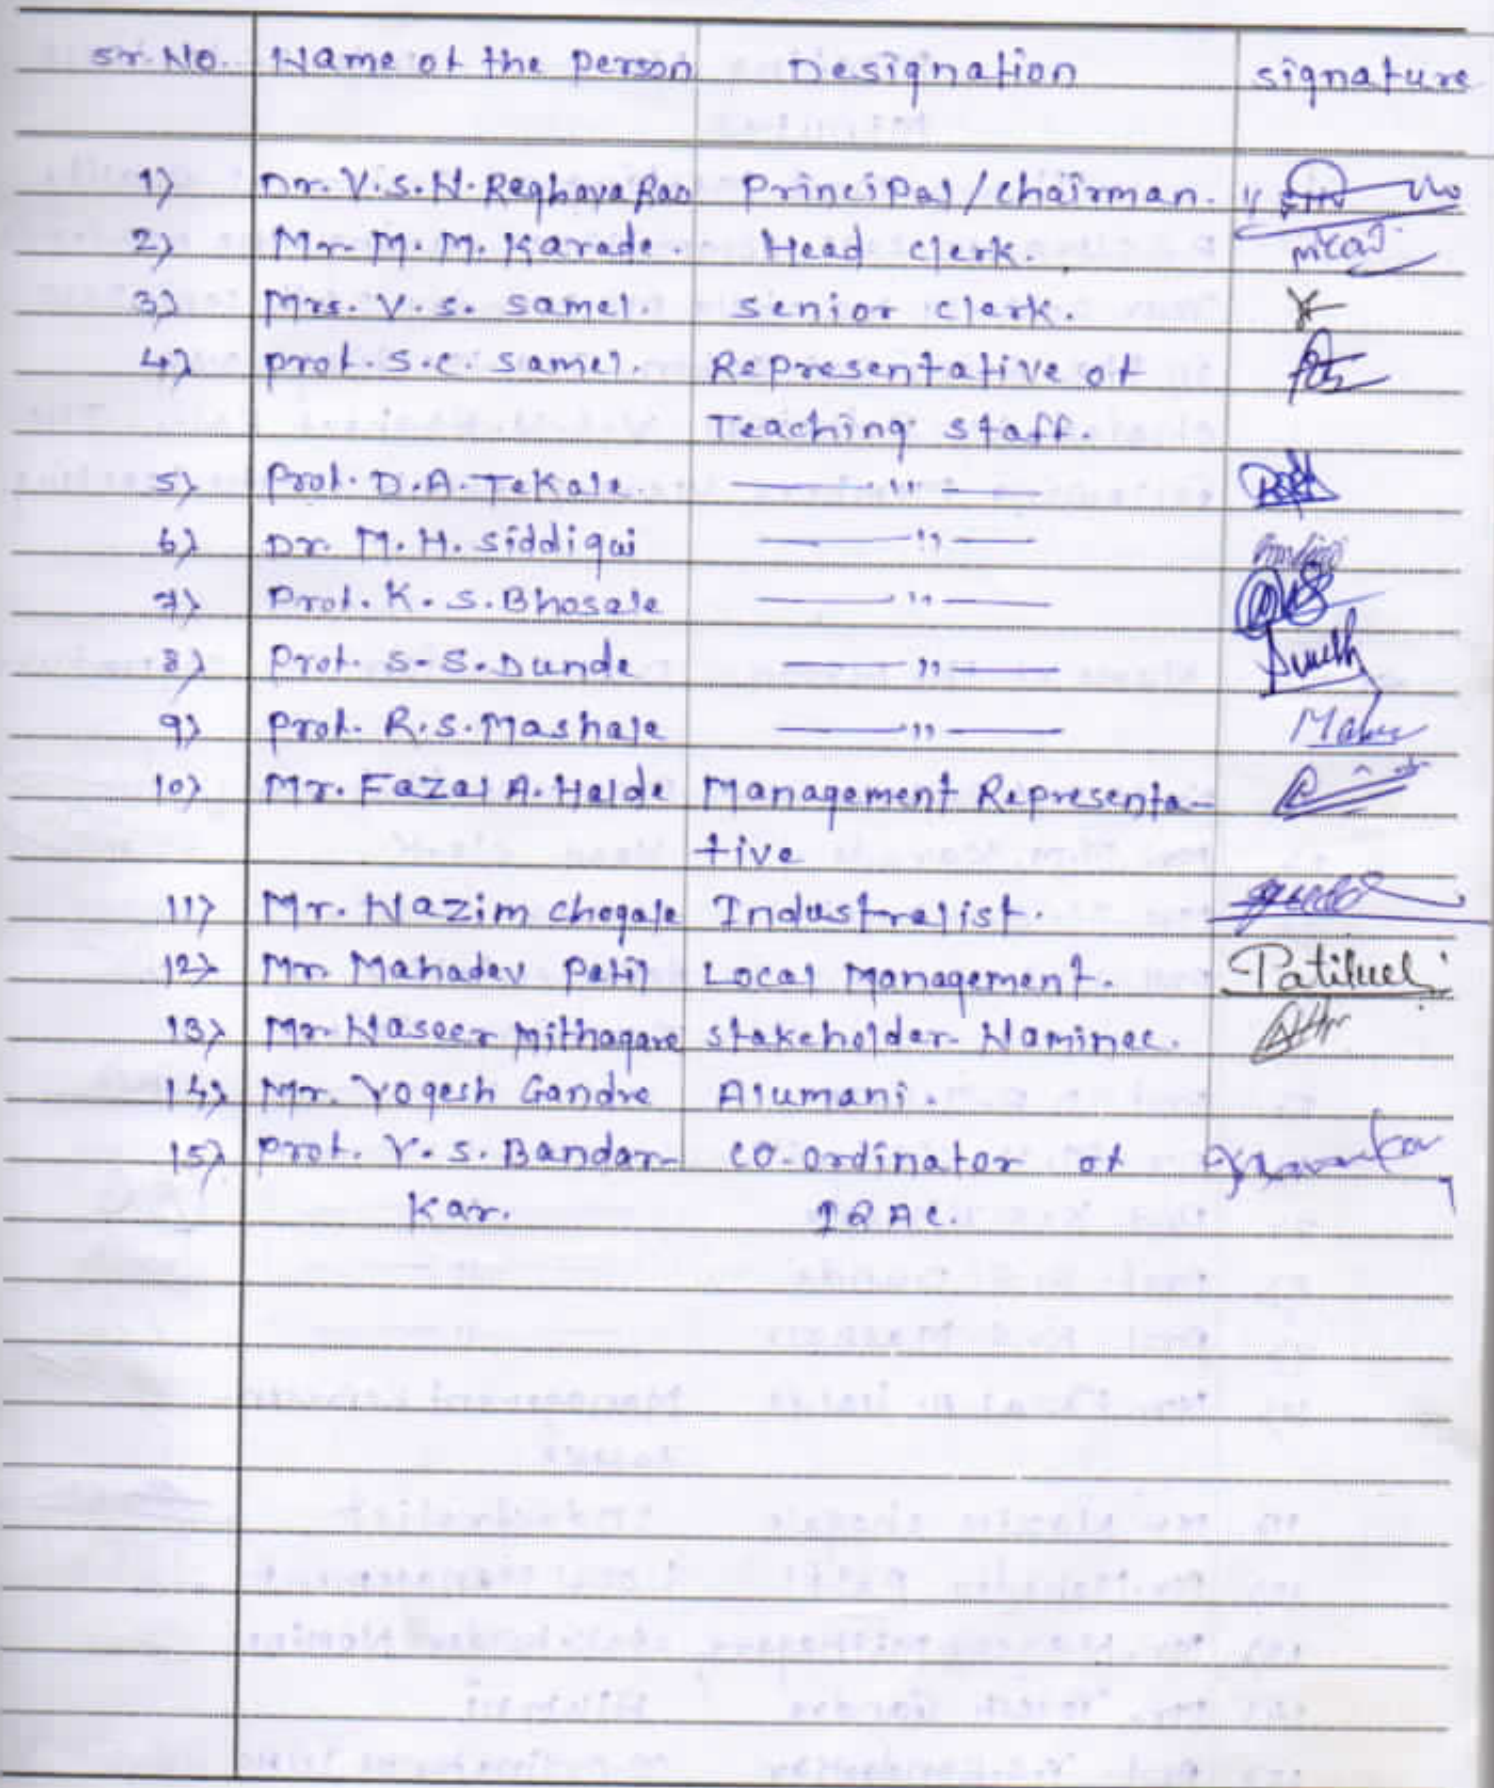 Sr. No. Name of the person Designation signature
1) Dr. V. S. N. Reghava Rao Principal/chairman.
2) Mr. M. M. Karade. Head clerk.
3) Mrs. V. S. Samel. Senior clerk.
4) Prof. S. C. Samel. Representative of
Teaching staff.
5) Prof. D. A. Tekale. — " —
6) Dr. M. H. Siddiqui — " —
7) Prof. K. S. Bhosale — " —
8) Prof. S. S. Dunde — " —
9) Prof. R. S. Mashale — " —
10) Mr. Fazal A. Halde Management Representa-
tive
11) Mr. Nazim Chogale Industralist.
12) Mr. Mahadev Patil Local Management.
13) Mr. Naseer Mithagare stakeholder Naminee.
14) Mr. Yogesh Gandre Alumani.
15) Prof. Y. S. Bandar- CO-ordinator of
Kar. IQAC.